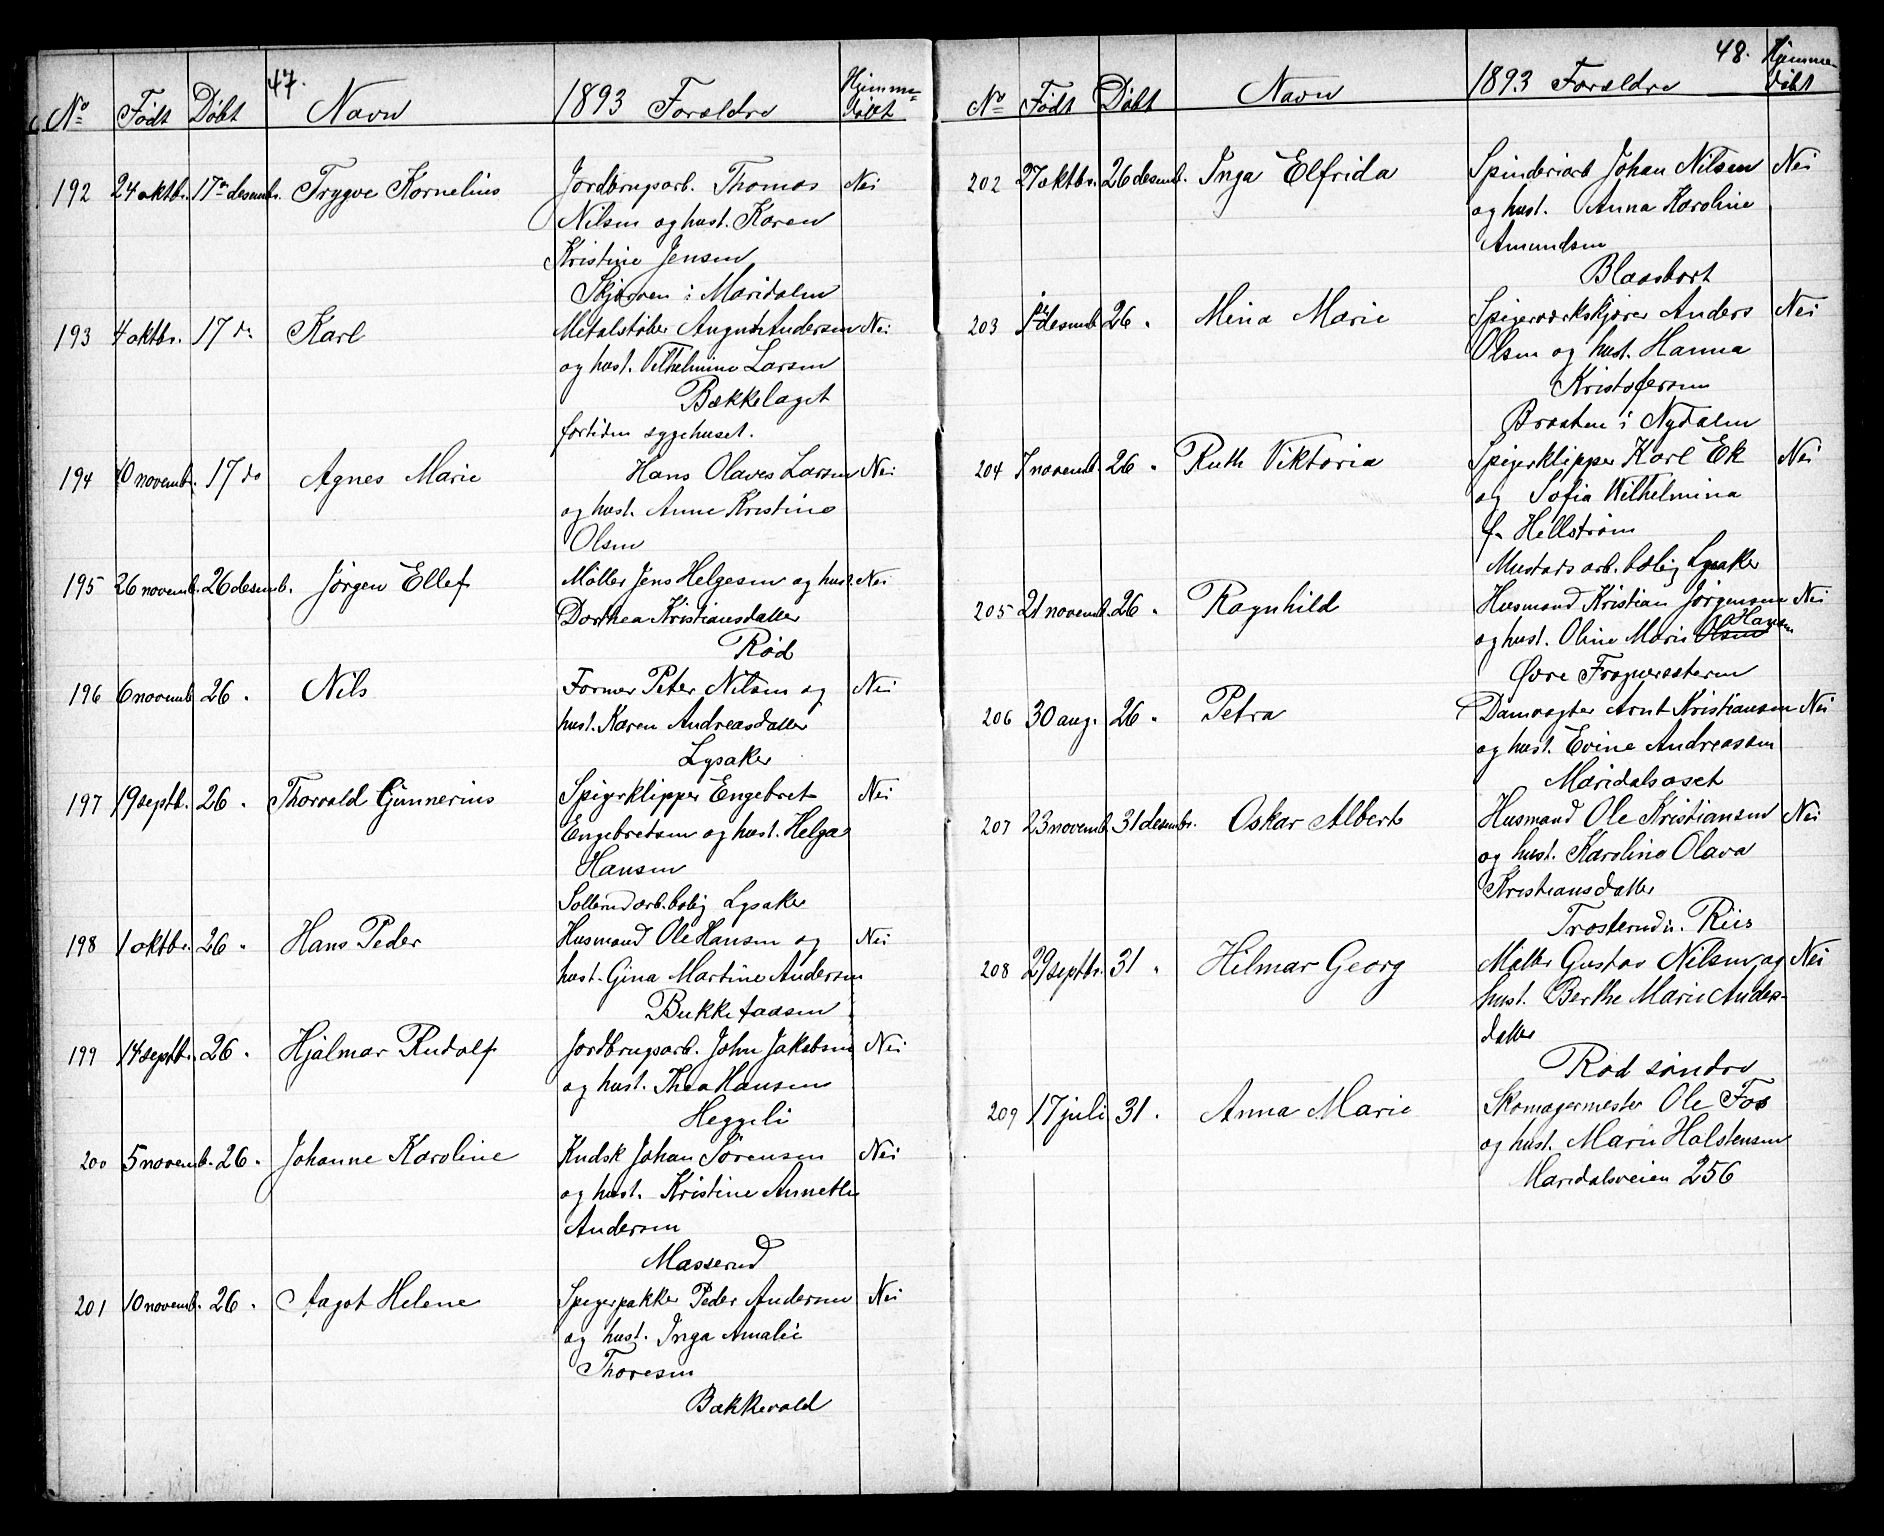 47.
No Født Døbt Navn 1893 Forældre Hjemme-døbt
192 24 oktbr. 17de desembr. Trygve Kornelius Jordbrugsarb. Thomas Nei
Nilsen og hust. Karen
Kristine Jensen
Skjærven i Maridalen
193 4 oktbr. 17 do Karl Metalstøber August Andersen Nei
og hust. Vilhelmine Larsen
Bækkelaget
fortiden sygehuset.
194 10 novembr. 17 do Agnes Marie Hans Olaves Larsen Nei
og hust. Anne Kristine
Olsen
195 26 novemb. 26 desemb. Jørgen Ellef Møller Jens Helgesen og hust. Nei
Dorthea Kristiansdatter
Rød
196 6 novemb 26 . Nils Former Peter Nilsen og Nei
hust. Karen Andreasdatter
Lysaker
197 19 septb. 26 . Thorvald Gunnerius Spigerklipper Engebret Nei
Engebretsen og hust. Helga
Hansen
Sollerud arb.bolig Lysaker
198 1 oktbr. 26 . Hans Peder Husmand Ole Hansen og Nei
hust. Gina Martine Andersen
Bukkefaasen
199 14 septb. 26 . Hjalmar Rudolf Jordbrugsarb. John Jakobsen Nei
og hust. Thea Hansen
Heggeli
200 5 novemb. 26 . Johanne Karoline Kudsk Johan Sørensen Nei
og hust. Kristine Annette
Andersen
Masserud
201 10 novemb. 26 . Aagot Helene Spigerpakker Peder Andersen Nei
og hust. Inga Amalie
Thoresen
Bakkevold
48.
No Født Døbt Navn 1893 Forældre Hjemme-døbt
202 27 oktbr. 26 desemb. Inga Elfrida Spinderiarb Johan Nilsen Nei
og hust. Anna Karoline
Amundsen
Blaasbort
203 1ste desemb 26 . Mina Marie Spigerværkskjører Anders Nei
Olsen og hust. Hanna
Kristofersen
Braaten i Nydalen
204 7 novemb. 26 . Ruth Viktoria Spigerklipper Karl Ek Nei
og Sofia Wilhelmina
f. Hellstrøm
Mustads arb. bolig Lysaker
205 21 novemb. 26 . Ragnhild Husmand Kristian Jørgensen Nei
og hust. Oline Marie Olsen Hansen
Øvre Frognersæteren
206 30 aug. 26 . Petra Damvogter Arnt Kristiansen Nei
og hust. Evine Andreassen
Maridalsoset
207 23 novemb. 31 desembr. Oskar Albert Husmand Ole Kristiansen Nei
og hust. Karoline Olava
Kristiansdatter
Trosterud u. Riis
208 29 septbr. 31 . Hilmar Georg Møller Gustav Nilsen og Nei
hust. Berthe Marie Anders-
datter
Rød søndre
209 17 juli 31 . Anna Marie Skomagermester Ole Fos
og hust. Marie Halstensen
Maridalsveien 256